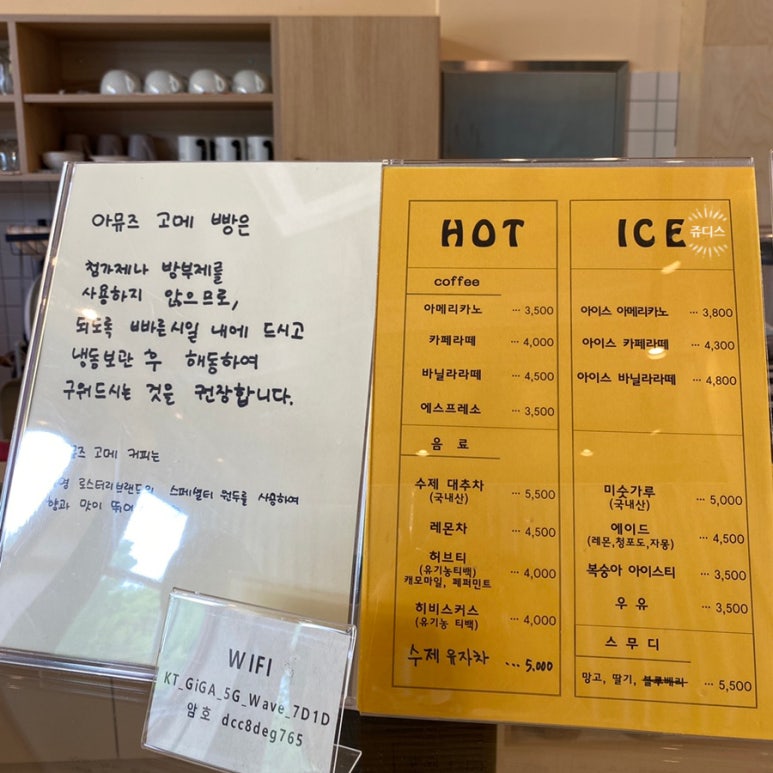 아뮤즈 고메 빵은
첨가제나 방부제를
사용하지 않으므로,
되도록 빠른시일 내에 드시고
냉동보관 후 해동하여
구워드시는 것을 권장합니다.
고메 커피는
로스터리브랜드의 스페셜터 원두를 사용하여
향과 맛이
WIFI
KT_GiGA_5G_Wave_7D1D
암호 dcc8deg765
HOT
coffee
아메리카노 ... 3,500
카페라떼 ... 4,000
바닐라라떼 ... 4,500
에스프레소 ... 3,500
음 료
수제 대추차 ... 5,500
(국내산)
레몬차 ... 4,500
허브티 ... 4,000
(유기농티백)
캐모마일, 페퍼민트
히비스커스 ... 4,000
(유기농 티백)
수제 유자차 ... 5,000
ICE
쥬디스
아이스 아메리카노 ... 3,800
아이스 카페라떼 ... 4,300
아이스 바닐라라떼 ... 4,800
미숫가루 ... 5,000
(국내산)
에이드 ... 4,500
(레몬,청포도,자몽)
복숭아 아이스티 ... 3,500
우 유 ... 3,500
스 무 디
망고, 딸기, 블루베리 ... 5,500